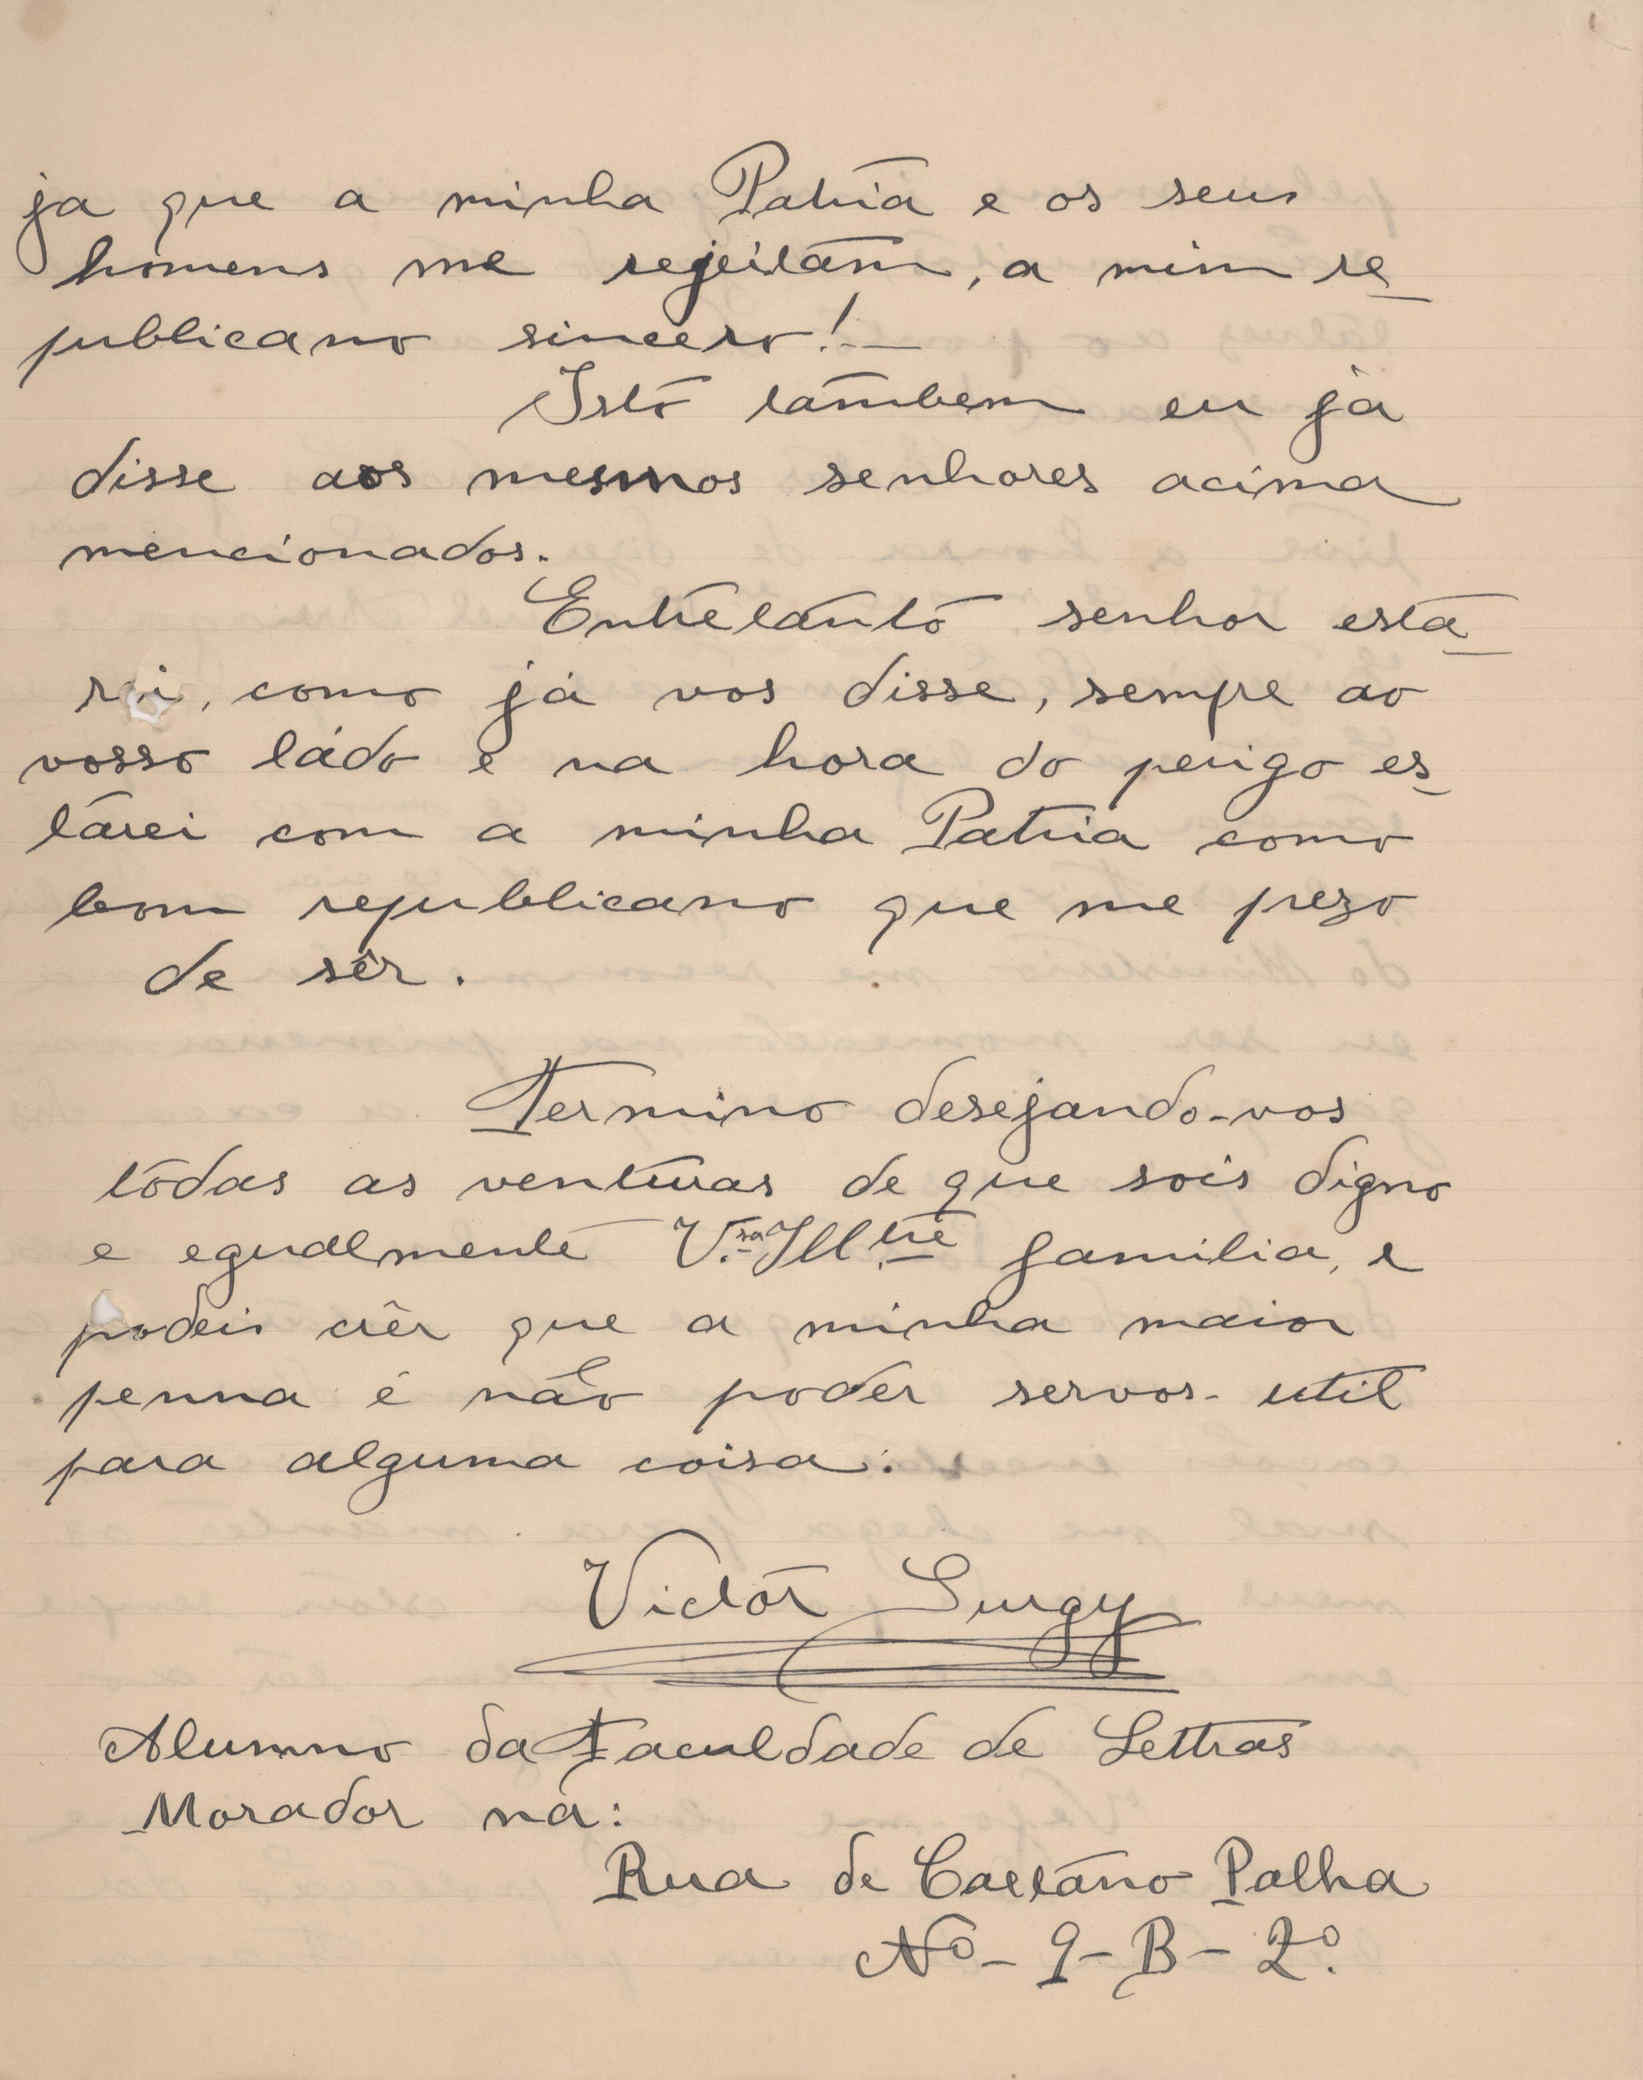 ja que a minha Patria e os seus
homens me rejeitam, a mim re-
publicano sincero!—
Isto tambem eu já
disse aos mesmos senhores acima
mencionados.
Entretanto senhor esta-
rei, como já vos disse, sempre ao
vosso ládo e na hora do perigo es-
tarei com a minha Patria como
bom republicano que me prezo
de sêr.
Termino desejando-vos
todas as venturas de que sois digno
e egualmente V.ra Ill.tre familia, e
podeis crêr que a minha maior
penna é não poder servos-util
para alguma coisa.
Victor Surgy
Alumno da Faculdade de Lettras
Morador na:
Rua de Caetano Palha
Nº - 9 - B - 2º.